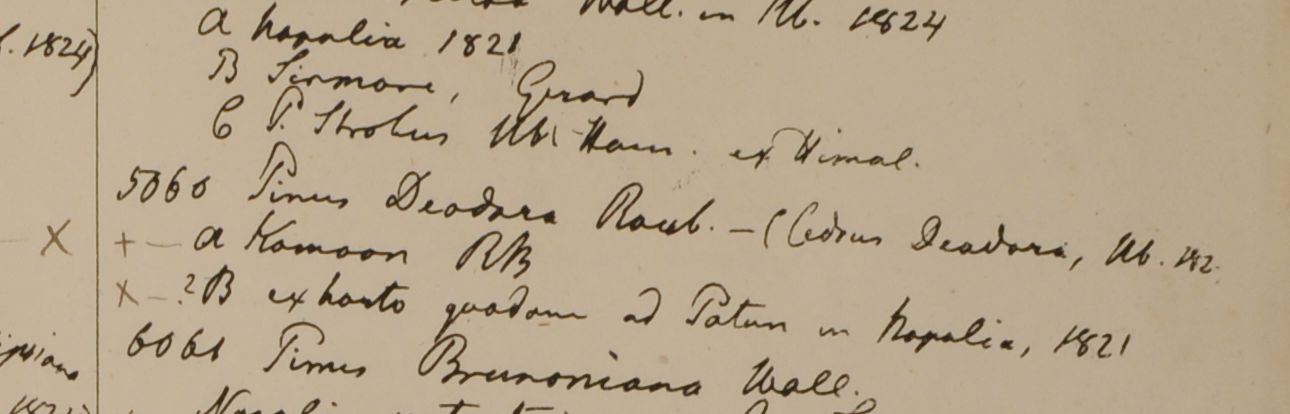 Wall. in Hb. 1824
a Napalia 1821
. 1824)
B Sirmore, Gerard
C P. Strobus Hb. Ham. ex Himal.
5060 Pinus Deodara Roxb. – (Cedrus Deodara, Hb. 182
X + – a Kamoon RB
X – ? B ex horto quodam ad Patun in Napalia, 1821
6061 Pinus Brunoniana Wall.